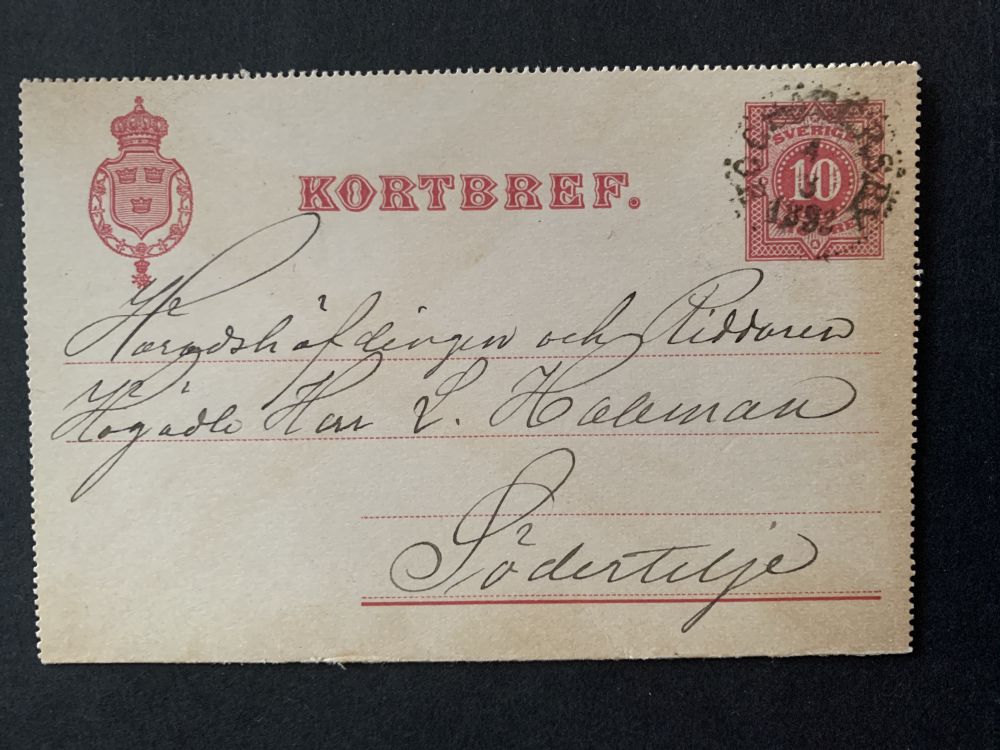 KORTBREF.
SVERIGE
10
4
9
189
Häradshöfdingen och Riddaren
Högädle Herr L. Haleman
Södertelje